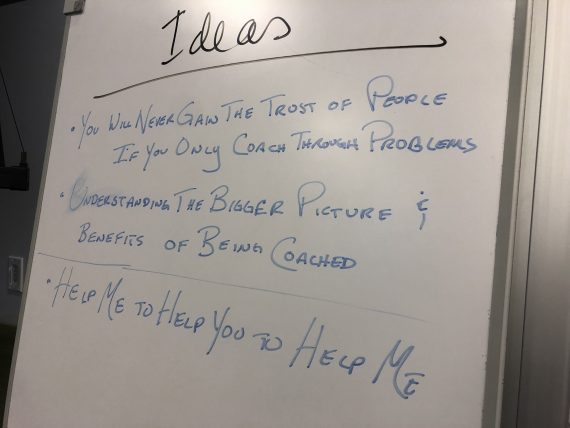 Ideas
• You Will Never Gain The Trust of People
If You Only Coach Through Problems
• Understanding The Bigger Picture &
Benefits of Being Coached
• Help Me to Help You to Help Me